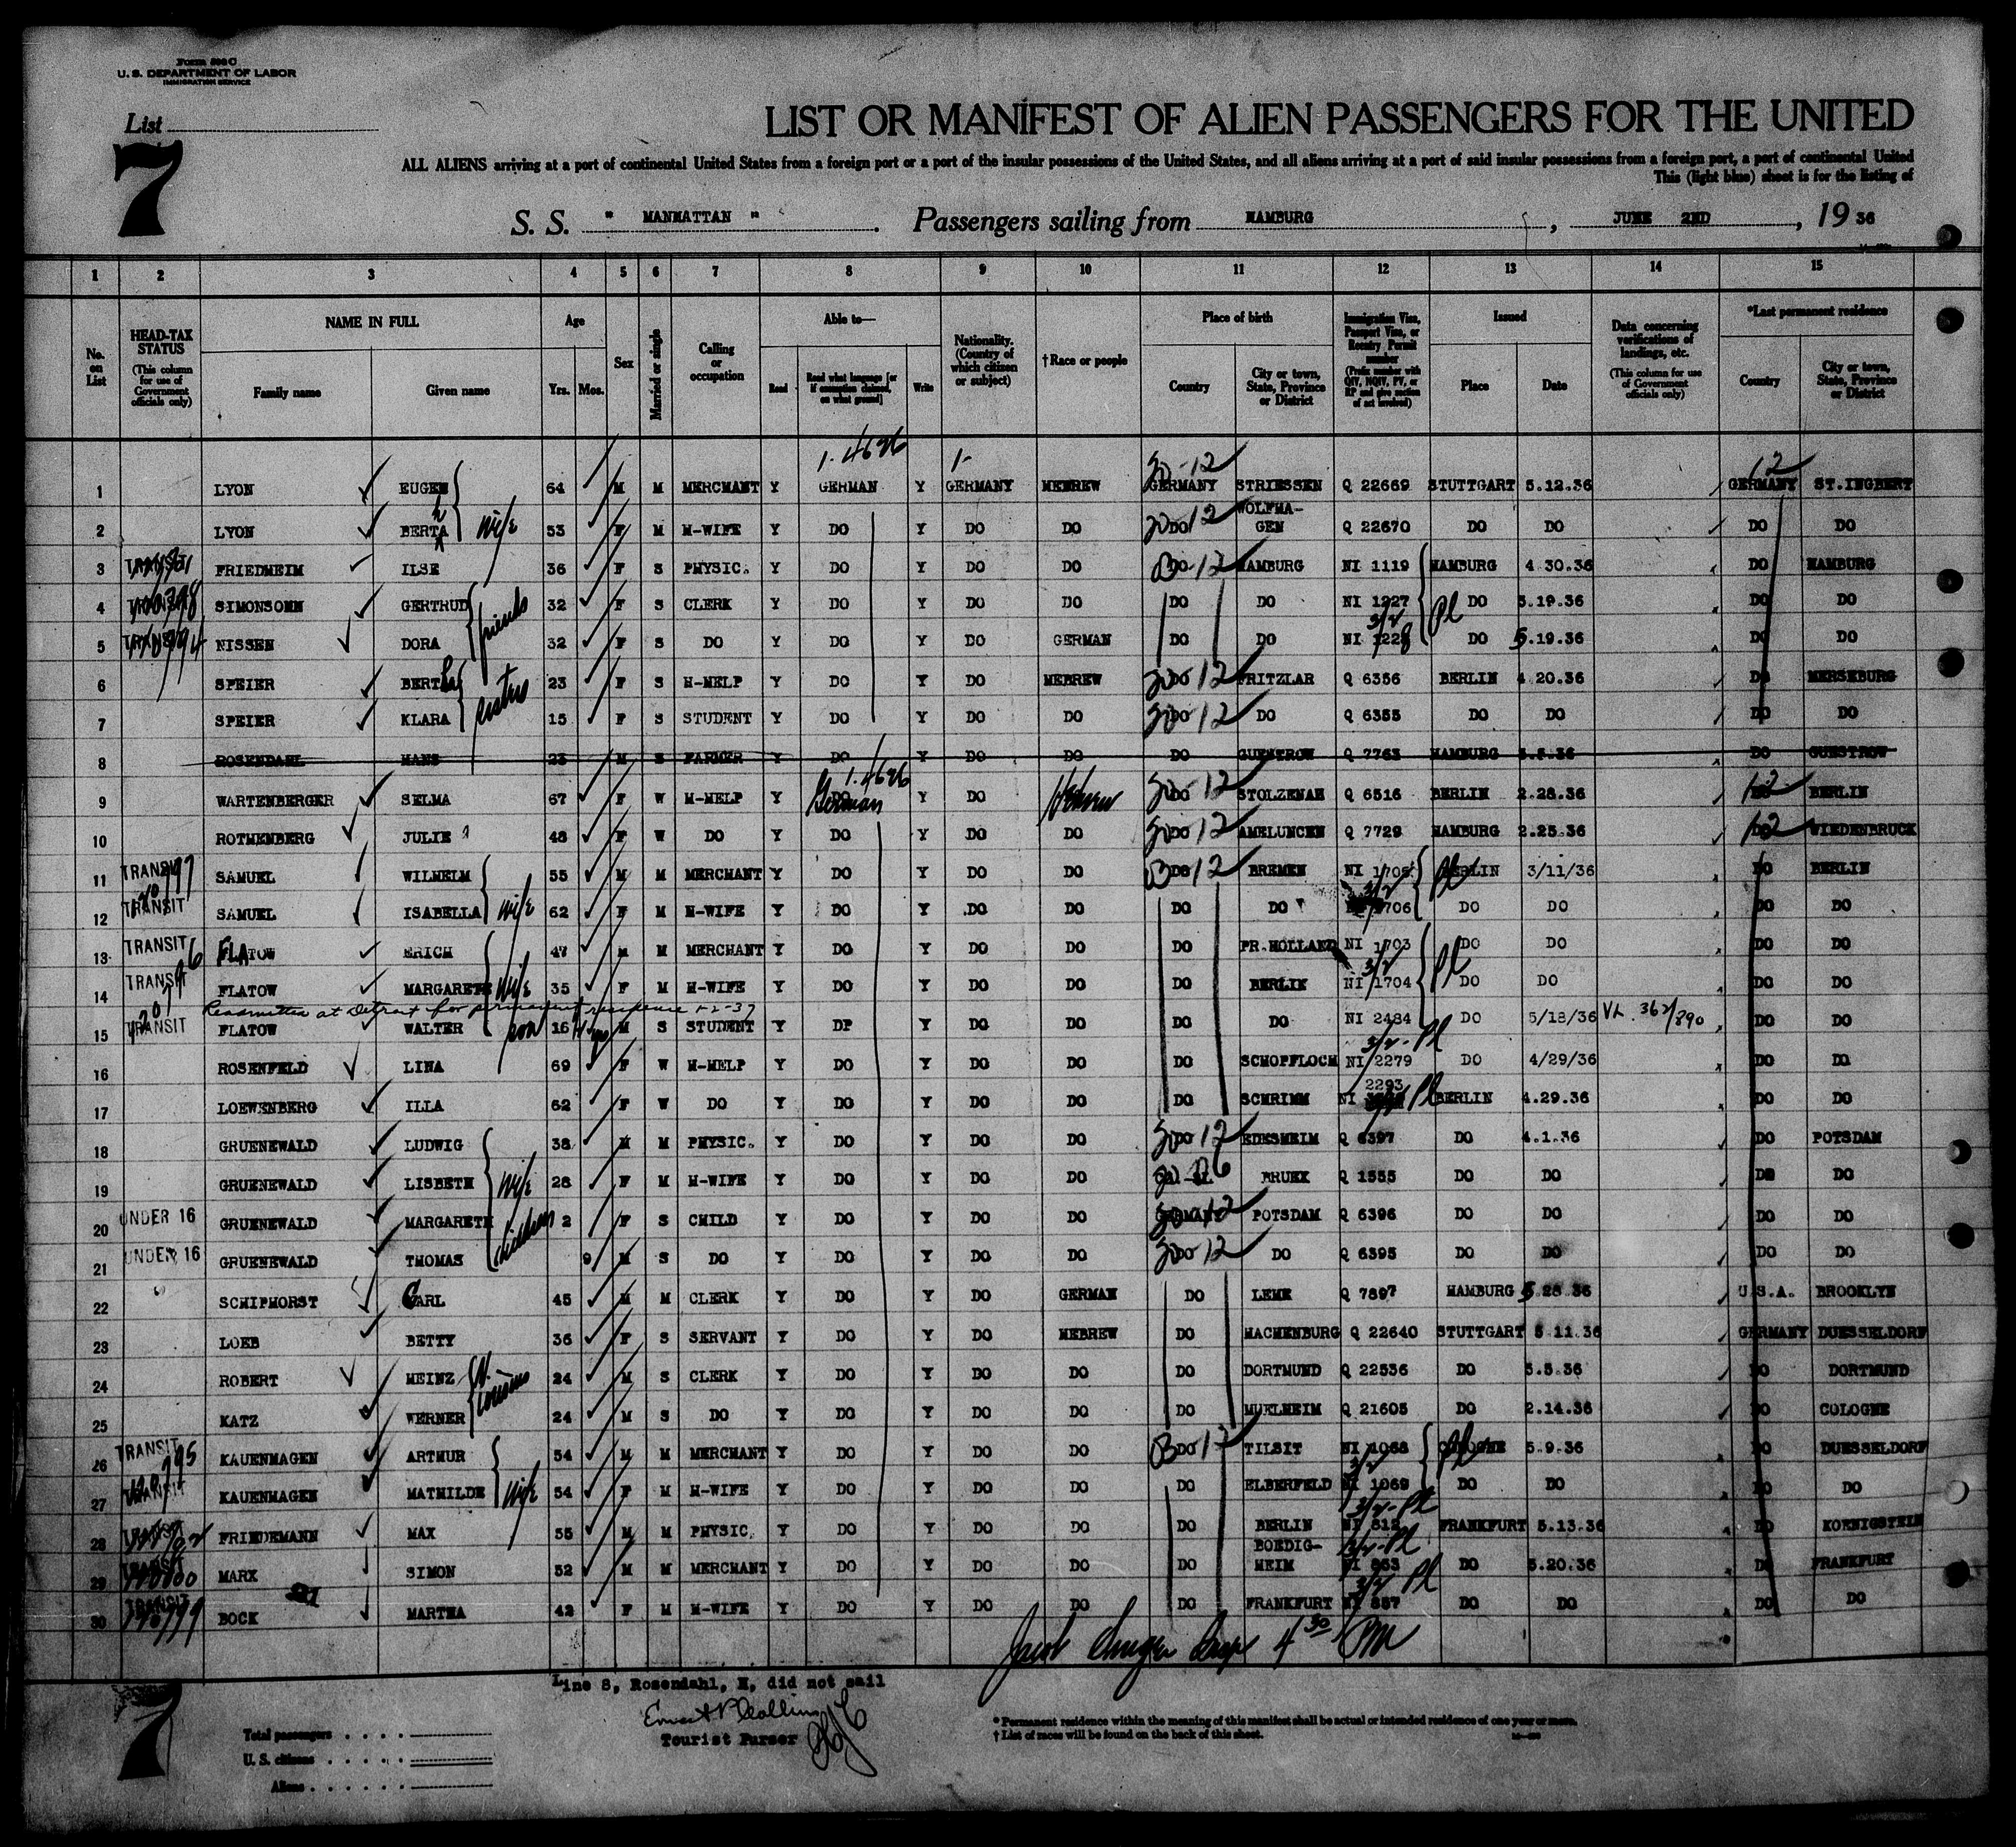 Form 500 C
U. S. DEPARTMENT OF LABOR
IMMIGRATION SERVICE
List
7
LIST OR MANIFEST OF ALIEN PASSENGERS FOR THE UNITED
ALL ALIENS arriving at a port of continental United States from a foreign port or a port of the insular possessions of the United States, and all aliens arriving at a port of said insular possessions from a foreign port, a port of continental United
This (light blue) sheet is for the listing of
S. S. " MANHATTAN ". Passengers sailing from HAMBURG, JUNE 2ND, 19 36
1 2 3 4 5 6 7 8 9 10 11 12 13 14 15
No. on List
HEAD-TAX STATUS (This column for use of Government officials only)
NAME IN FULL Family name Given name
Age Yrs. Mos.
Sex
Married or single
Calling or occupation
Able to— Read Read what language [or if exemption claimed, on what ground] Write
Nationality. (Country of which citizen or subject)
†Race or people
Place of birth Country City or town, State, Province or District
Immigration Visa, Passport Visa, or Reentry Permit number (Prefix number with QIV, NQIV, PV, or RP and give section of act involved)
Issued Place Date
Data concerning verifications of landings, etc. (This column for use of Government officials only)
*Last permanent residence Country City or town, State, Province or District
1-4696 1- 12 12
1 LYON EUGEN 64 M M MERCHANT Y GERMAN Y GERMANY HEBREW GERMANY STRIESSEN Q 22669 STUTTGART 5.12.36 GERMANY ST.INGBERT
2 LYON BERTHA wife 53 F M H-WIFE Y DO Y DO DO DO 12 WOLFHA-GEN Q 22670 DO DO DO DO
3 TRANSIT FRIEDHEIM ILSE 36 F S PHYSIC. Y DO Y DO DO DO 12 HAMBURG NI 1119 HAMBURG 4 30.36 DO HAMBURG
4 SIMONSOHN GERTRUD 32 F S CLERK Y DO Y DO DO DO DO NI 1227 DO 5.19.36 DO DO
friends 3/2 Pl
5 NISSEN DORA 32 F S DO Y DO Y DO GERMAN DO DO NI 1228 DO 5.19.36 DO DO
6 SPEIER BERTHA 23 F S H-HELP Y DO Y DO HEBREW DO 12 FRITZLAR Q 6356 BERLIN 4 20.36 DO MERSEBURG
sisters
7 SPEIER KLARA 15 F S STUDENT Y DO Y DO DO DO 12 DO Q 6355 DO DO DO DO
8 ROSENDAHL HANS 23 M S FARMER Y DO Y DO DO DO GUESTROW Q 7763 HAMBURG 5.5.36 DO GUESTROW
1-4696
9 WARTENBERGER SELMA 67 F W H-HELP Y German Y DO Hebrew DO 12 STOLZENAH Q 6516 BERLIN 2.28.36 12 BERLIN
10 ROTHENBERG JULIE 48 F W DO Y DO Y DO DO DO 12 AMELUNCEN Q 7729 HAMBURG 2.25.36 12 WIEDENBRUCK
11 TRANSIT SAMUEL WILHELM 55 M M MERCHANT Y DO Y DO DO DO 12 BREMEN NI 1705 BERLIN 3/11/36 DO BERLIN
3/2 Pl
12 TRANSIT SAMUEL ISABELLA wife 62 F M H-WIFE Y DO Y DO DO DO DO 1706 DO DO DO DO
13 TRANSIT FLATOW ERICH 47 M M MERCHANT Y DO Y DO DO DO PR.HOLLAND NI 1703 DO DO DO DO
3/2 Pl
14 TRANSIT FLATOW MARGARETE wife 35 F M H-WIFE Y DO Y DO DO DO BERLIN NI 1704 DO DO DO DO
Readmitted at Detroit for permanent residence 1-2-37
15 TRANSIT FLATOW WALTER son 16 M S STUDENT Y DP Y DO DO DO DO NI 2484 DO 5/18/36 VL. 362/890 DO DO
3/2-Pl
16 ROSENFELD LINA 69 F W H-HELP Y DO Y DO DO DO SCHOPFLOCH NI 2279 DO 4/29/36 DO DO
2293
17 LOEWENBERG ILLA 62 F W DO Y DO Y DO DO DO SCHRIMM NI Pl BERLIN 4.29.36 DO DO
18 GRUENEWALD LUDWIG 38 M M PHYSIC. Y DO Y DO DO DO 12 EDESHEIM Q 6397 DO 4.1.36 DO POTSDAM
19 GRUENEWALD LISBETH wife 28 F M H-WIFE Y DO Y DO DO BRUEX Q 1555 DO DO DO DO
20 UNDER 16 GRUENEWALD MARGARETH 2 F S CHILD Y DO Y DO DO GERMANY 12 POTSDAM Q 6396 DO DO DO DO
children
21 UNDER 16 GRUENEWALD THOMAS 9 M S DO Y DO Y DO DO DO 12 DO Q 6395 DO DO DO DO
22 SCHIPHORST CARL 45 M M CLERK Y DO Y DO GERMAN DO LEHE Q 7897 HAMBURG 5.28 36 U.S.A. BROOKLYN
23 LOEB BETTY 36 F S SERVANT Y DO Y DO HEBREW DO HACHENBURG Q 22640 STUTTGART 5 11.36 GERMANY DUESSELDORF
24 ROBERT HEINZ 24 M S CLERK Y DO Y DO DO DO DORTMUND Q 22536 DO 5.5.36 DO DORTMUND
cousins
25 KATZ WERNER 24 M S DO Y DO Y DO DO DO MUELHEIM Q 21605 DO 2.14.36 DO COLOGNE
26 TRANSIT KAUENHAGEN ARTHUR 54 M M MERCHANT Y DO Y DO DO DO 12 TILSIT NI 1068 COLOGNE 5.9.36 DO DUESSELDORF
3/2 Pl
27 TRANSIT KAUENHAGEN MATHILDE wife 54 F M H-WIFE Y DO Y DO DO DO ELBERFELD NI 1069 DO DO DO DO
3/2-Pl
28 FRIEDEMANN MAX 55 M M PHYSIC. Y DO Y DO DO DO BERLIN NI 812 FRANKFURT 5.13.36 DO KOENIGSTEIN
3/2-Pl
29 TRANSIT MARX SIMON 52 M M MERCHANT Y DO Y DO DO DO BOEDIG-HEIM NI 863 DO 5.20.36 DO FRANKFURT
3/2 Pl
30 TRANSIT BOCK MARTHA 42 F M H-WIFE Y DO Y DO DO DO FRANKFURT NI 857 DO DO DO DO
Jacob Insp 4 30 PM
Line 8, Rosendahl, H, did not sail
Ernest P Collins
Tourist Purser
7
Total passengers
U. S. citizens
Aliens
* Permanent residence within the meaning of this manifest shall be actual or intended residence of one year or more.
† List of races will be found on the back of this sheet.